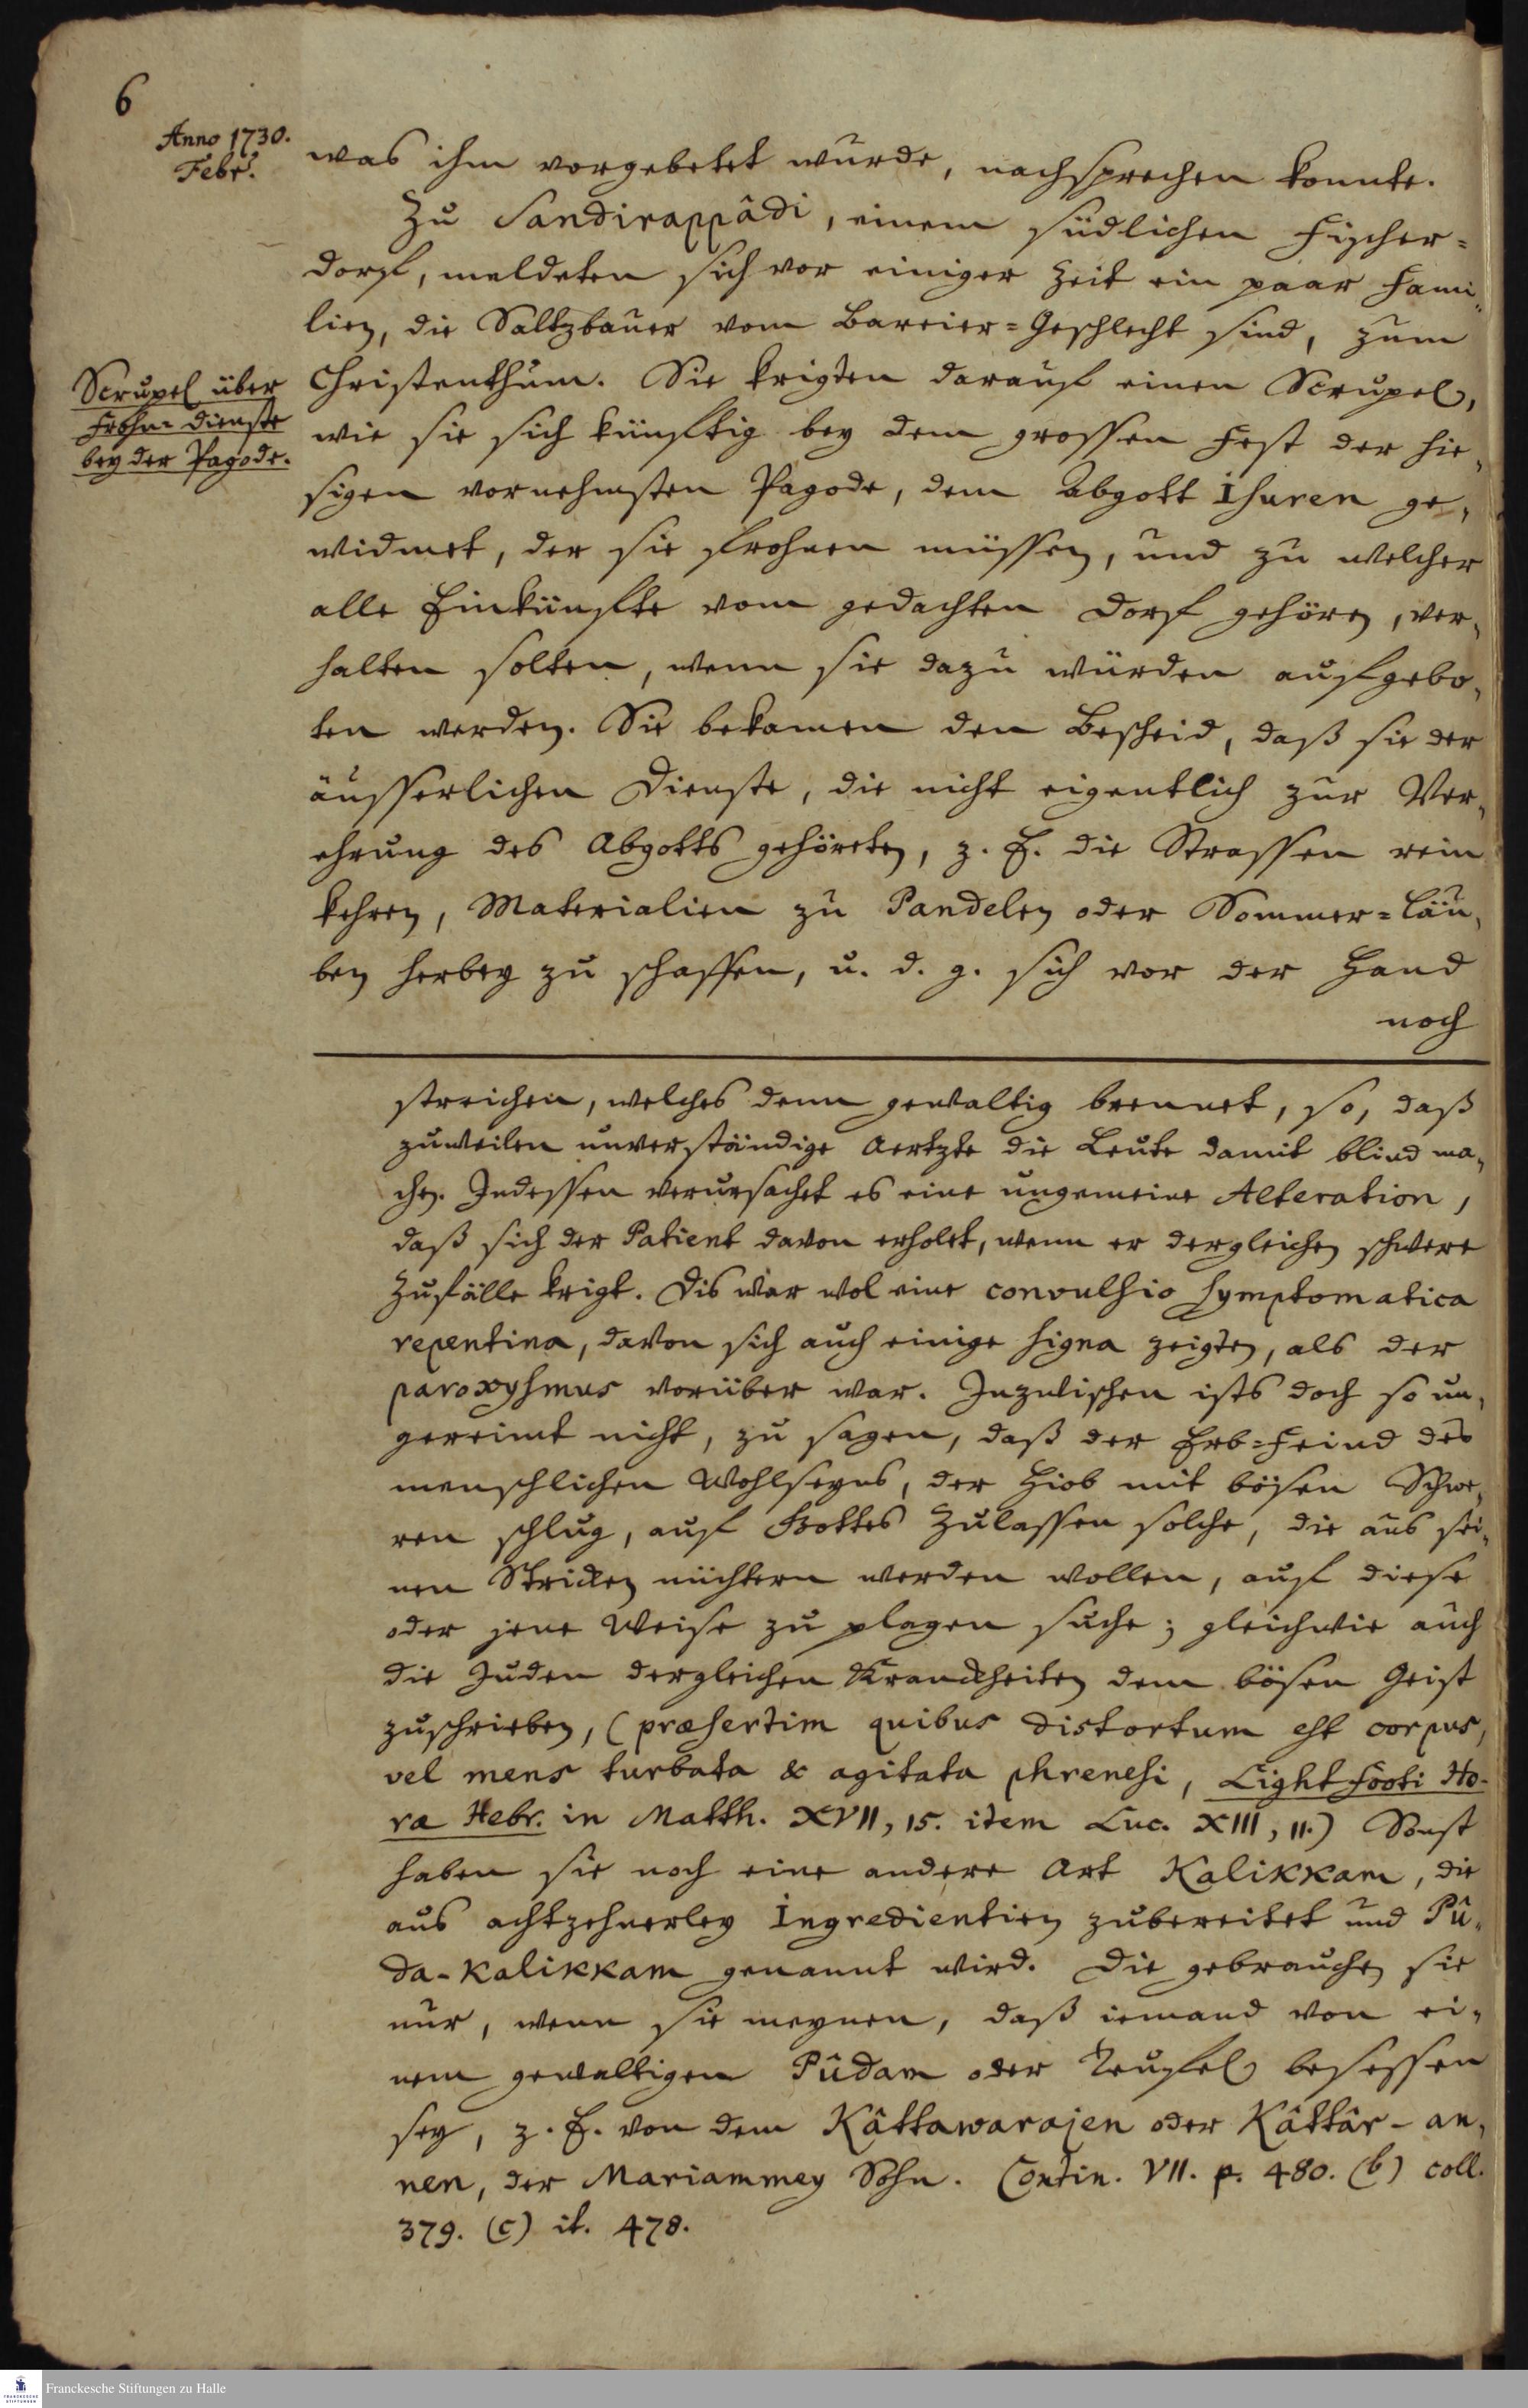 6
Anno 1730.
Febr.
was ihm vorgebetet wurde, nachsprechen konnte.
Zu Sandirappâdi, einem südlichen Fischer=
dorf, meldeten sich vor einiger Zeit ein paar Fami-
lien, die Saltzbauer vom Bareier=Geschlecht sind, zum
Scrupel über
Frohn-dienste
bey der Pagode.
Christenthum. Sie krigten darauf einen Scrupel,
wie sie sich künftig bey dem grossen Fest der hie-
sigen vornehmsten Pagode, dem Abgott Isuren ge-
widmet, der sie frohnen müssen, und zu welcher
alle Einkünfte vom gedachten Dorf gehören, ver-
halten solten, wenn sie dazu würden aufgebo-
ten werden. Sie bekamen den Bescheid, daß sie der
äusserlichen Dienste, die nicht eigentlich zur Ver-
ehrung des Abgotts gehöreten, z. E. die Strassen rein
kehren, Materialien zu Pandelen oder Sommer=Läu-
ben herbey zu schaffen, u. d. g. sich vor der Hand
noch
streichen, welches denn gewaltig brennet, so, daß
zuweilen unverständige Aertzte die Leute damit blind ma-
chen. Indessen verursachet es eine ungemeine Alteration,
daß sich der Patient davon erholet, wenn er dergleichen schwere
Zufälle krigt. Dis war wol eine convulsio symptomatica
repentina, davon sich auch einige signa zeigten, als der
paroxysmus vorüber war. Inzwischen ists doch so un-
gereimt nicht, zu sagen, daß der Erb=Feind des
menschlichen Wohlseyns, der Hiob mit bösen Schwe-
ren schlug, auf Gottes Zulassen solche, die aus sei-
nen Stricken nüchtern werden wollen, auf diese
oder jene Weise zu plagen suche; gleichwie auch
die Juden dergleichen Kranckheiten dem bösen Geist
zuschrieben, (præsertim quibus distortum est corpus,
vel mens turbata & agitata phrenesi, Lightfooti Ho-
ra Hebr. in Matth. XVII, 15. item Luc. XIII, 11.) Sonst
haben sie noch eine andere Art Kalikkam, die
aus achtzehnerley Ingredientien zubereitet und Pû-
da-Kalikkam genannt wird. Die gebrauchen sie
nur, wenn sie meynen, daß iemand von ei-
nem gewaltigen Pûdam oder Teufel besessen
sey, z. E. von dem Kâttawarajen oder Kâttâr-an-
nen, der Mariammey Sohn. Contin. VII. p. 480. (b) coll.
379. (c) it. 478.
FRANCKESCHE
STIFTUNGEN
Franckesche Stiftungen zu Halle